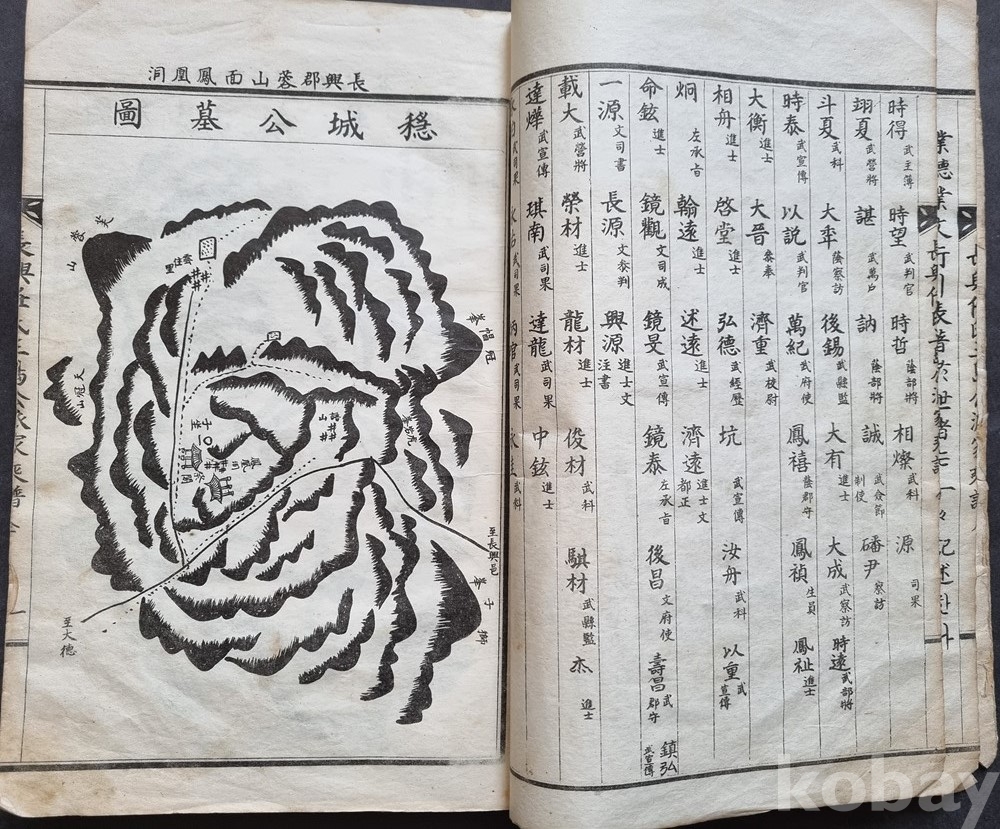 時得 武主簿 時望 武判官 時哲 蔭部將 相燦 武科 源 司果
翊夏 武營將 諶 武萬戶 訥 蔭部將 誠 武僉節制使 磻尹 察訪
斗夏 武科 大年 蔭察訪 後錫 武縣監 大有 進士 大成 武察訪 時遠 武部將
時泰 武宣傳 以說 武判官 萬紀 武府使 鳳禧 蔭郡守 鳳禎 生員 鳳祉 進士
大衡 進士 大晉 參奉 濟重 武校尉
相舟 進士 啓堂 進士 弘德 武經歷 坑 武宣傳 汝舟 武科 以重 武宣傳
炯 左承旨 翰遠 進士 述遠 進士 濟遠 進士文都正
命鉉 進士 鏡觀 文司成 鏡旻 武宣傳 鏡泰 左承旨 後昌 文府使 壽昌 武郡守 鎮弘 武宣傳
一源 文司書 長源 文參判 興源 進士文注書
載大 武營將 榮材 進士 龍材 進士 俊材 武科 騏材 武縣監 杰 進士
達燁 武宣傳 琪南 武司果 達龍 武司果 中鉉 進士
長興郡蓉山面鳳凰洞
穩城公墓圖
冠帽峯
天冠山
子坐
至長興邑
至大德
kobay